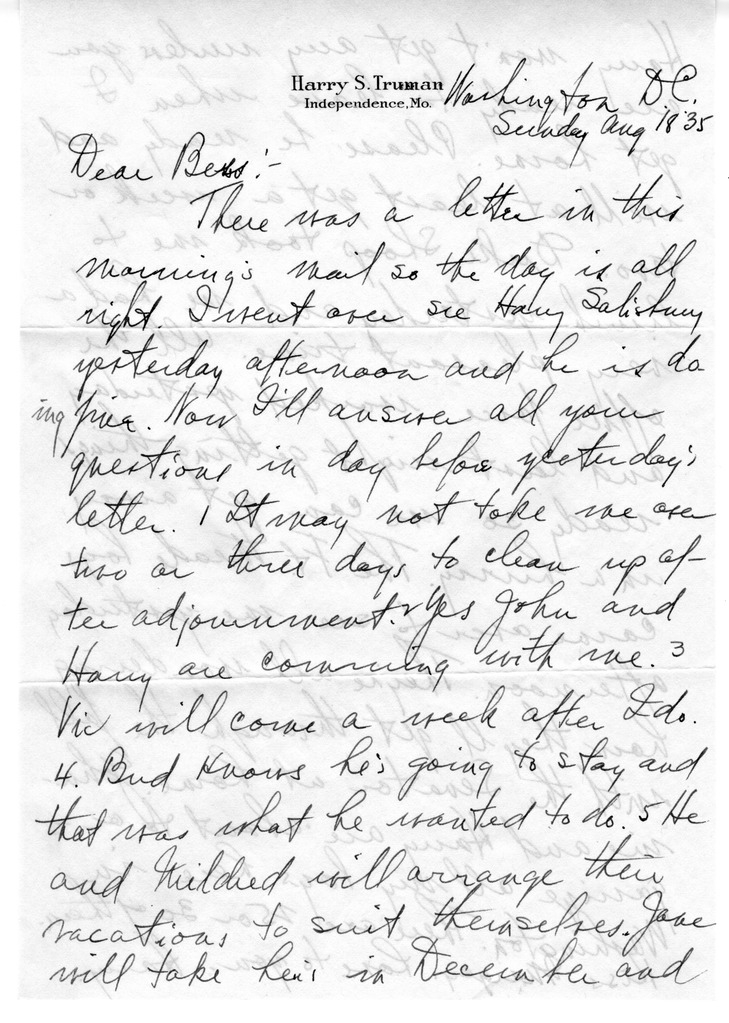 Harry S. Truman
Independence, Mo.
Washington D.C.
Sunday Aug 18 '35
Dear Bess:-
There was a letter in this
morning's mail so the day is all
right. I went over see Harry Salisbury
yesterday afternoon and he is do
ing fine. Now I'll answer all your
questions in day before yesterday's
letter. 1 It may not take me over
two or three days to clean up af-
ter adjournment. 2 Yes John and
Harry are comming with me. 3
Vic will come a week after I do.
4. Bud knows he's going to stay and
that was what he wanted to do. 5 He
and Mildred will arrange their
vacations to suit themselves. Jane
will take hers in December and